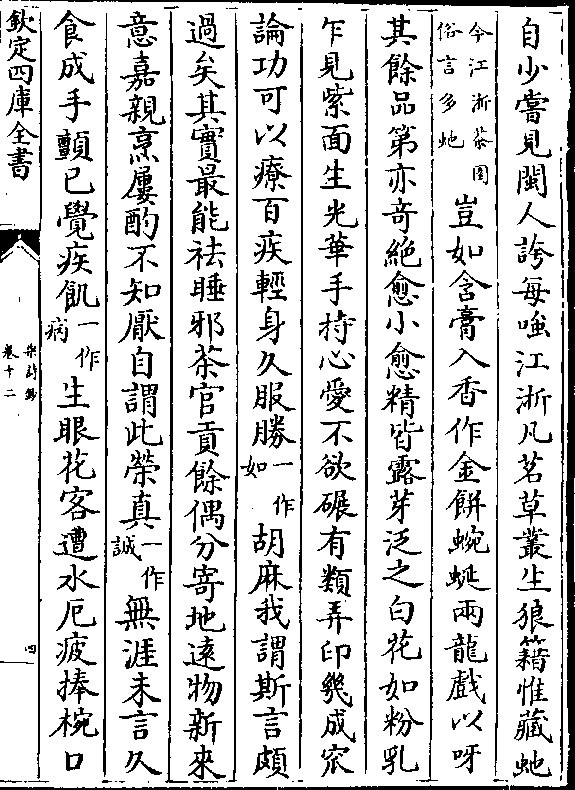 自少嘗見閩人誇每嗤江浙凡茗草叢生狼籍惟藏虵
今江浙茶園俗言多虵
豈如含膏入香作金餅蜿蜒兩龍戲以呀
其餘品第亦竒絶愈小愈精皆露芽泛之白花如粉乳
乍見紫面生光華手持心愛不欲碾有類弄印幾成窊
論功可以療百疾輕身久服勝一作如胡麻我謂斯言頗
過矣其實最能祛睡邪茶官貢餘偶分寄地逺物新來
意嘉親烹屢酌不知厭自謂此榮真一作誠無涯未言久
食成手顫已覺疾飢一作病生眼花客遭水厄疲捧椀口
欽定四庫全書
卷十二
四